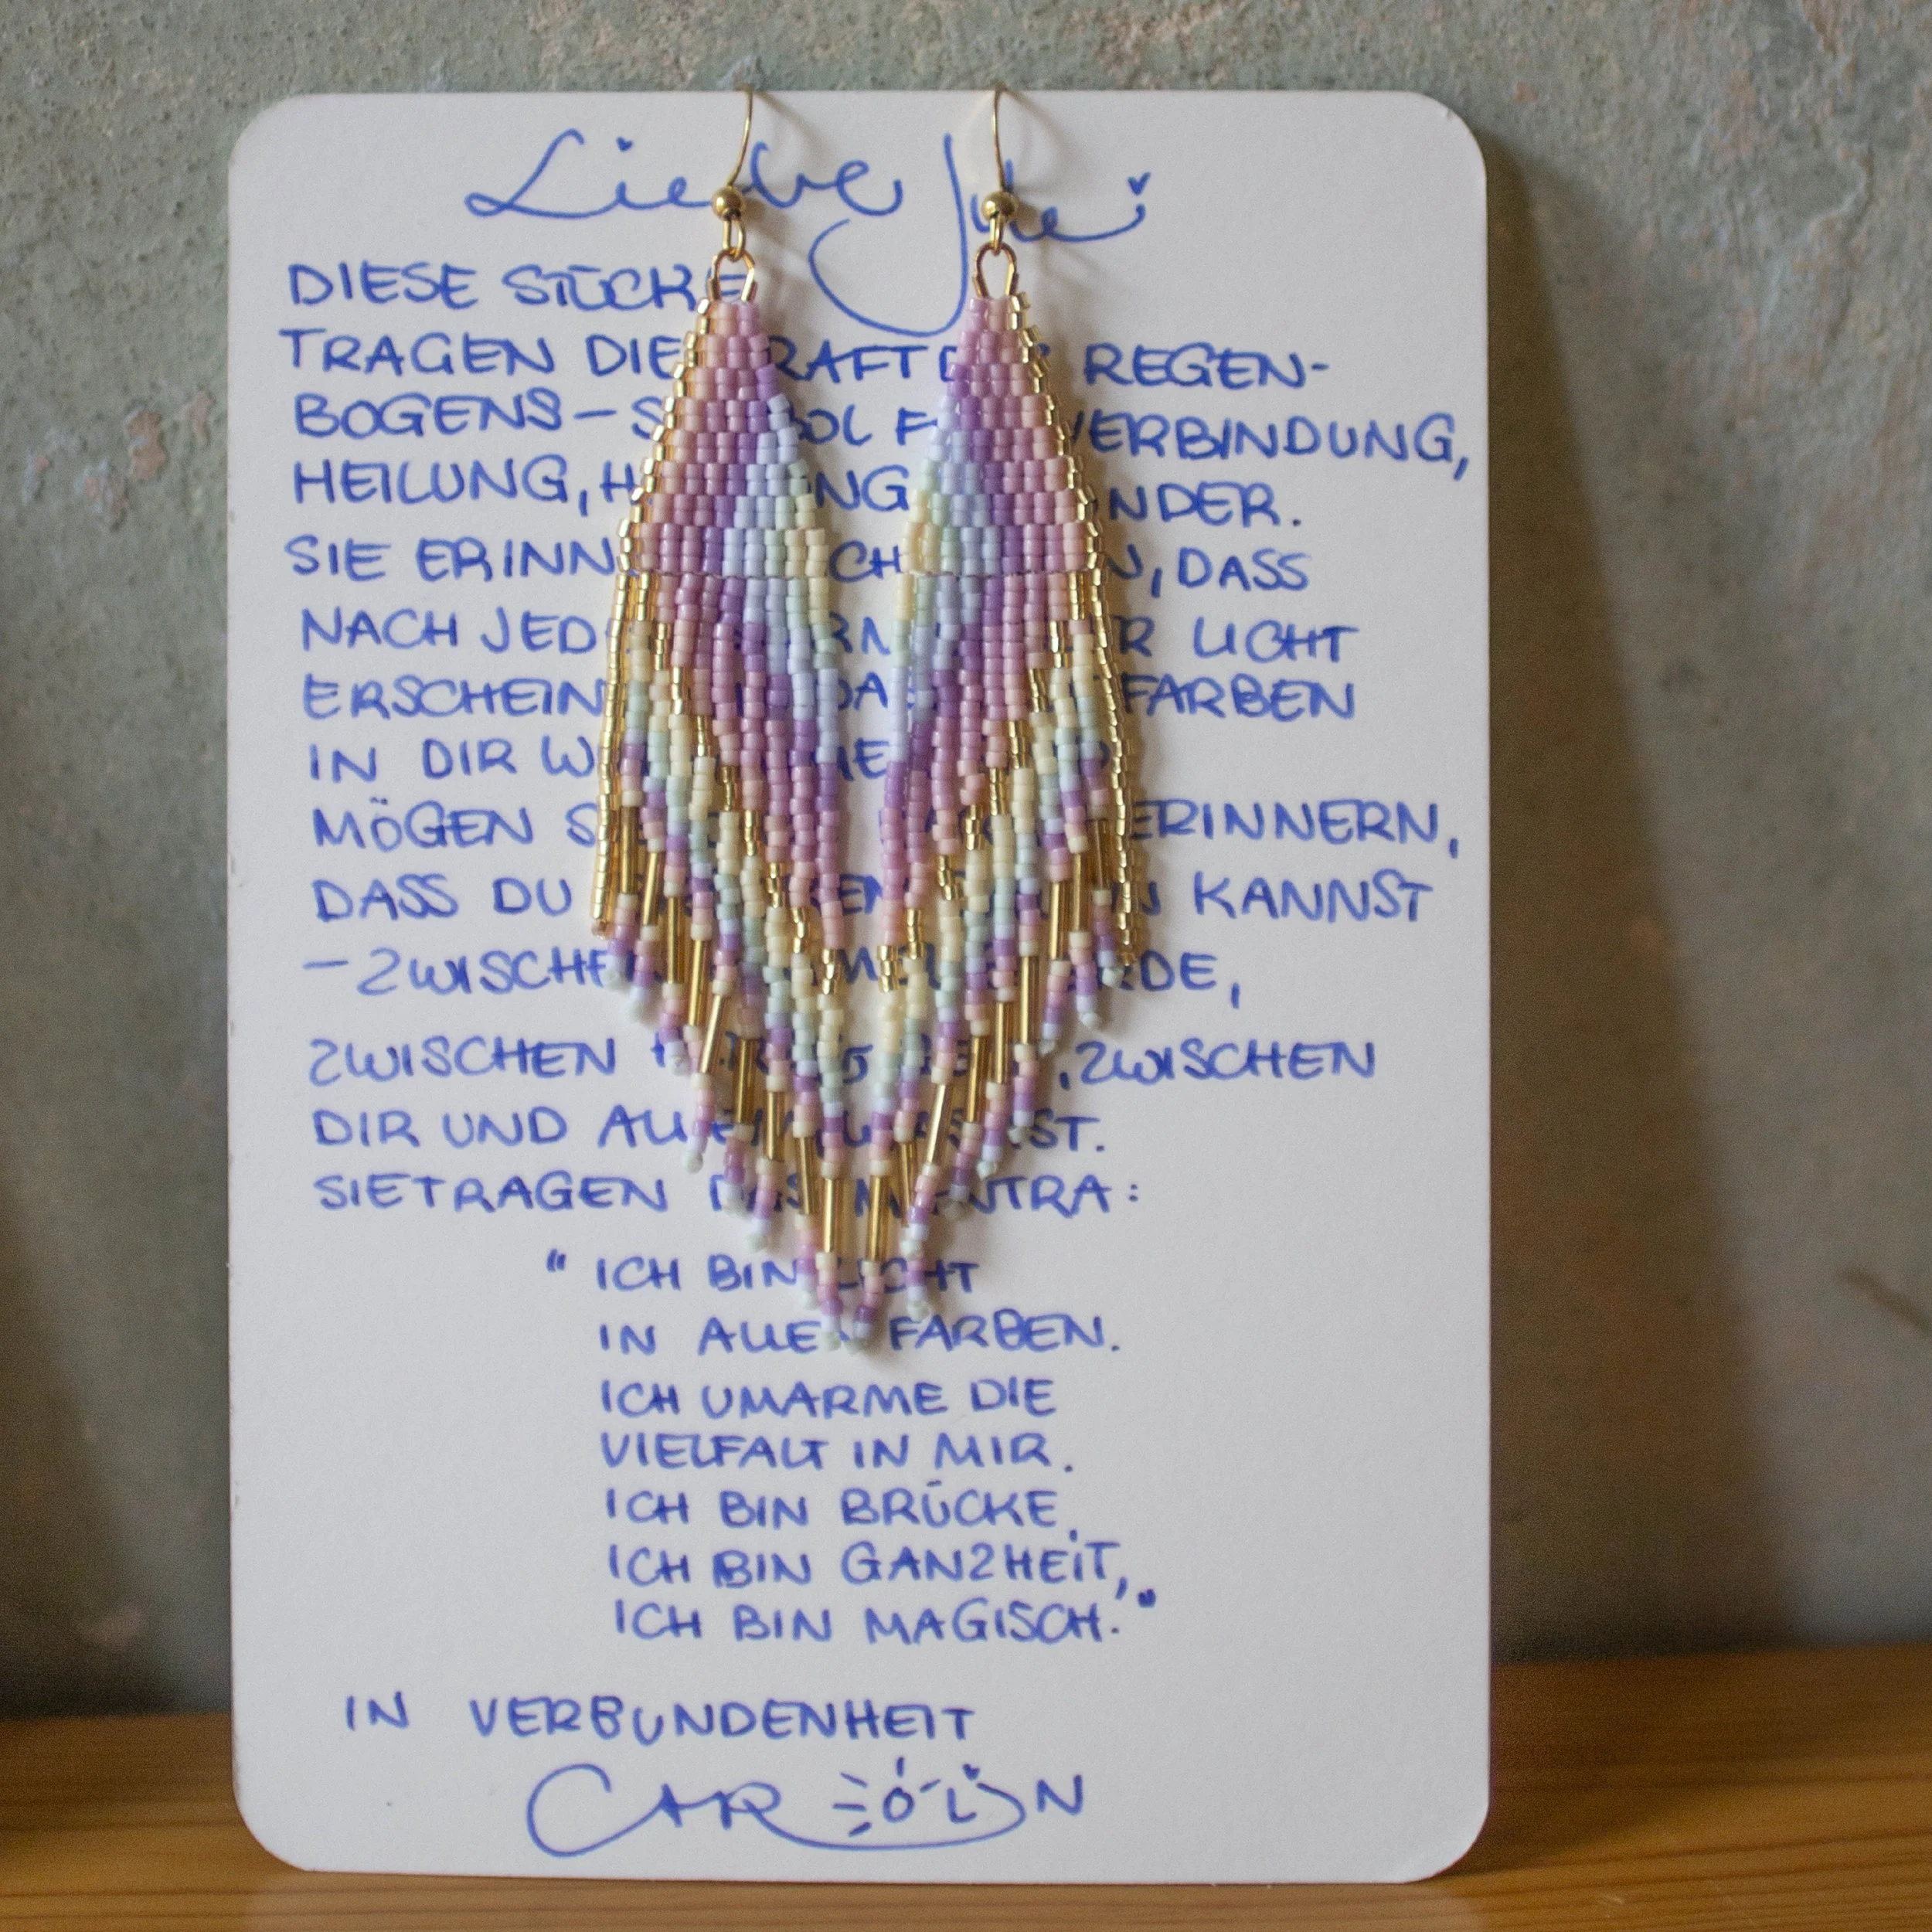 Liebe
DIESE STÜCKE
TRAGEN DIE KRAFT DES REGEN-
BOGENS – SYMBOL FÜR VERBINDUNG,
HEILUNG, WUNDER.
SIE ERINNERN DICH DARAN, DASS
NACH JEDEM STURM LICHT
ERSCHEINT DASS FARBEN
IN DIR WOHNEN.
MÖGEN SIE DICH DARAN ERINNERN,
DASS DU KANNST
– ZWISCHEN HIMMEL & ERDE,
ZWISCHEN , ZWISCHEN
DIR UND ALLEM, WAS IST.
SIE TRAGEN DAS MANTRA:
" ICH BIN LICHT
IN ALLEN FARBEN.
ICH UMARME DIE
VIELFALT IN MIR.
ICH BIN BRÜCKE,
ICH BIN GANZHEIT,
ICH BIN MAGISCH."
IN VERBUNDENHEIT
CAROLIN